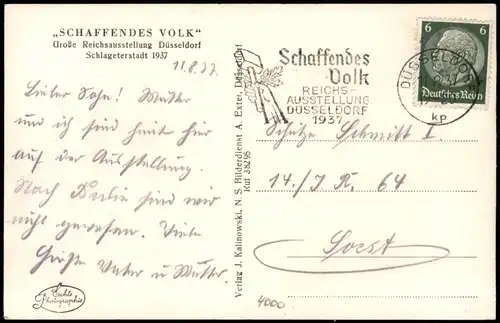 „SCHAFFENDES VOLK“
Große Reichsausstellung Düsseldorf
Schlageterstadt 1937
11.8.37
Lieber Sohn! Mutter
und ich sind heut hier
auf der Ausstellung.
Nach Berlin sind wir
nicht gewesen. Viele
Grüße Vater u Mutter.
Echte
Photographie
Verlag J. Kalinowski, N. S Bilderdienst A. Exter, Düsseldorf
Ruf 38295
Schaffendes
Volk
REICHS-
AUSSTELLUNG
DÜSSELDORF
1937
DÜSSELDORF
kp
6 6
Deutsches Reich
Schütze Schmitt I.
14./J. R. 64
Soest
4000